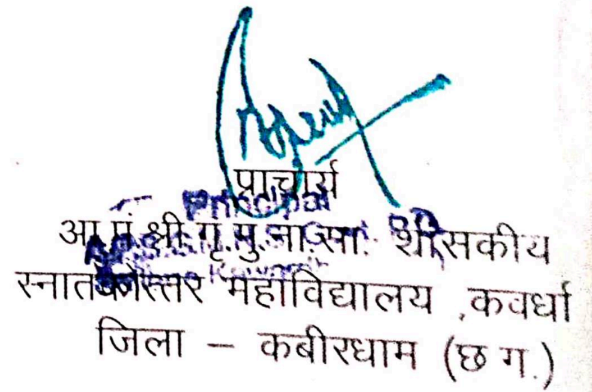 प्राचार्य
Principal
आ.पं.श्री.गृ.मु.ना.सा. शासकीय
स्नातकोत्तर महाविद्यालय ,कवर्धा
जिला – कबीरधाम (छ ग.)